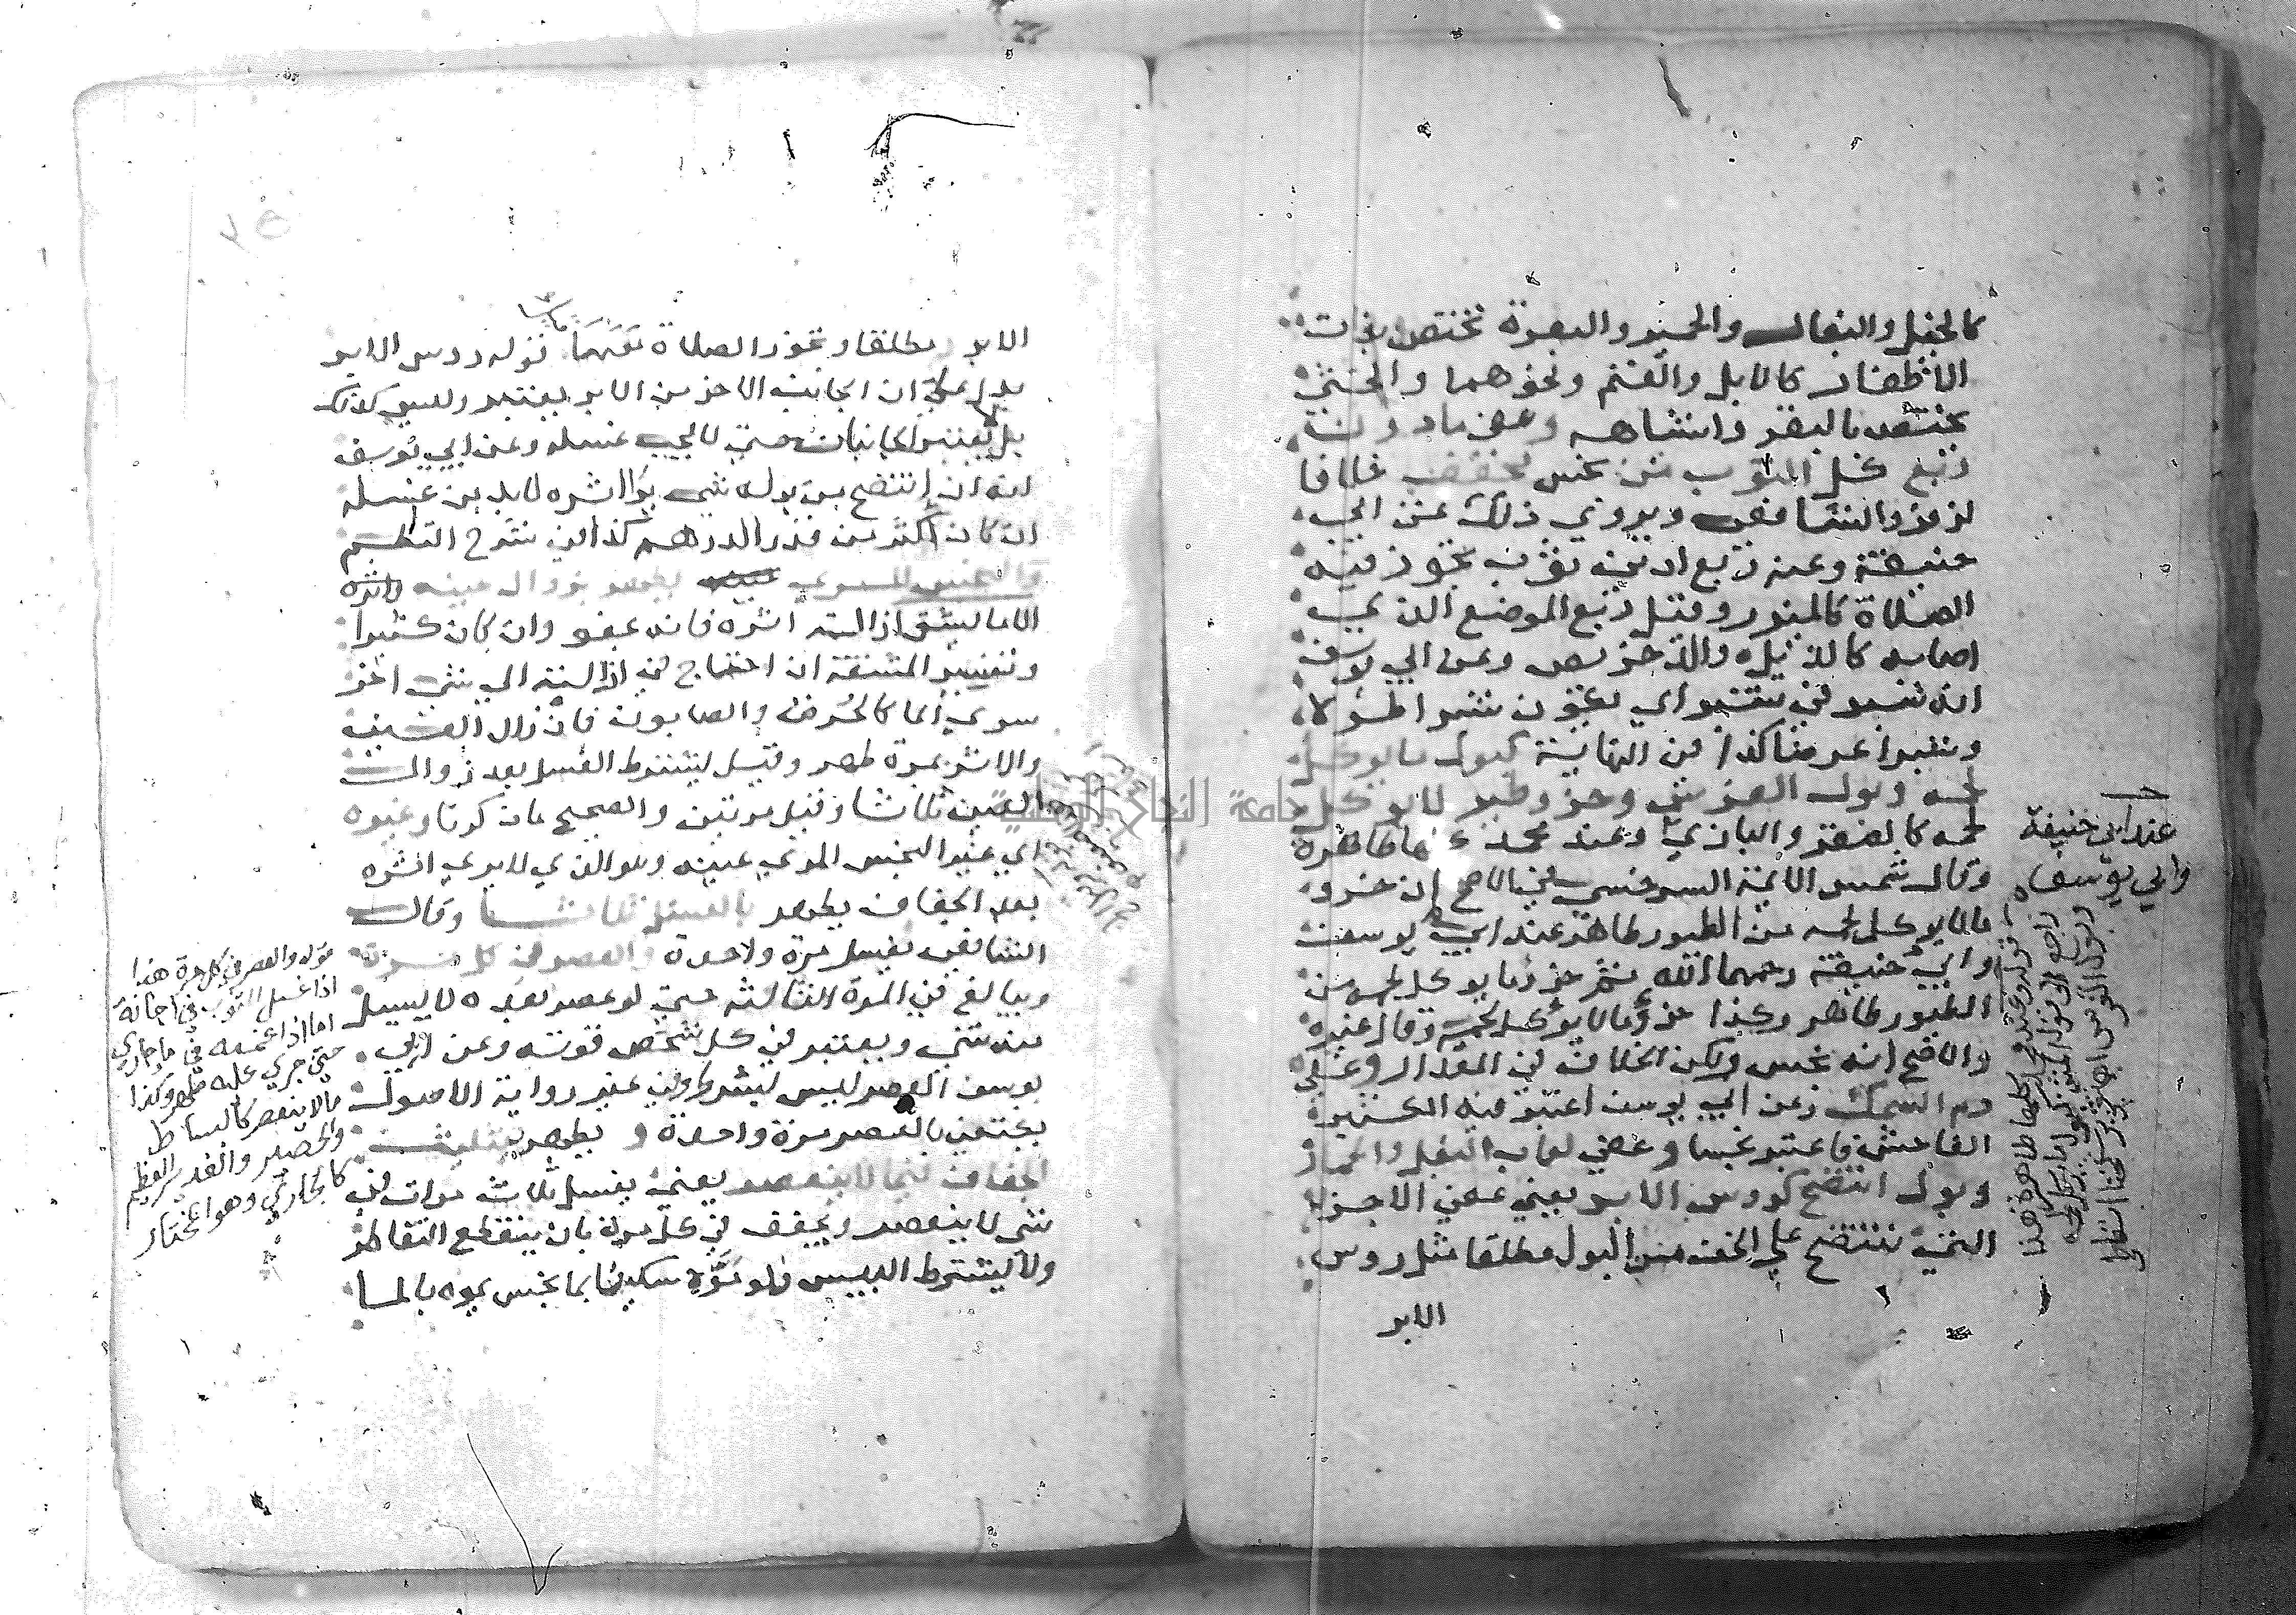 كالخيل والبغال والحمير والبعرة تختص بذات
الاظفار كالابل والغنم ونحوهما والخثى
يختص بالبقر واشباهه وعفى مادون
ربع كل الثوب من نجس مخفف خلافا
لزفر والشافعى ويروي ذلك عن ابي
حنيفة وعنه ربع ادنى ثوب تجوز فيه
الصلاة كالمئزر وقيل ربع الموضع الذي
اصابه كالذيل والدخريص وعن ابي يوسف
انه شبر في شبر اي يكون شبرا طولا
وشبرا عرضا كذا في النهاية كبول ما يوكل
لحمه وبول الفرس وخرو طير لا يوكل
لحمه كالصقر والبازي وعند محمد طاهرة
وقال شمس الائمة السرخسي في الاصح ان خرو
مالا يوكل لحمه من الطيور طاهر عند ابي يوسف
وابي حنيفة رحمهما الله ثم خرؤ ما يوكل لحمه من
الطيور طاهر وكذا خرؤ مالا يوكل لحمه وقال غيره
والاصح انه نجس ولكن الخلاف في المقدار وعفى
دم السمك وعن ابي يوسف اعتبر فيه الكثير
الفاحش فاعتبر نجسا وعفى لعاب البغل والحمار
وبول انتضح كروس الابر يعني عفى الاجزا
التي تنتضح على الخف من البول مطلقا مثل روس
الابر
عند ابي حنيفة
وابي يوسف
الابر مطلقا وتجوز الصلاة معها قوله روس الابر
يدل على ان الجانب الاخر من الابر يعتبر وليس كذلك
بل لا يعتبر الجانبان حتى لا يجب غسله وعن ابي يوسف
انه ان انتضح من بوله شي يرا اثره لابد من غسله
ان كان اكثر من قدر الدرهم كذا في شرح
والنجس المرءي يطهر بزوال عينه واثره
الا ما يشق ازالة اثره فانه عفو وان كان كثيرا
وتفسير المشقة ان احتاج في ازالته الى شي اخر
سوى الما كالحرض والصابون فان زال العين
والاثر بمرة طهر وقيل يشترط الغسل بعد زوال
العين ثلاثا وقيل مرتين والصحيح ما ذكرنا وغيره
اي غير النجس المرءي عينه وهو الذي لا يرى اثره
بعد الجفاف يطهر بالغسل ثلاثا وقال
الشافعي يغسل مرة واحدة والعصر في كل مرة
ويبالغ في المرة الثالثة حتى لو عصر بعده لا يسيل
منه شي ويعتبر في كل شخص قوته وعن ابي
يوسف العصر ليس بشرط وفي غير رواية الاصول
يكتفى بالعصر مرة واحدة و يطهر بتثليث
الجفاف فيما لا ينعصر يعني يغسل ثلاث مرات في
شي لا ينعصر ويجفف في كل مرة بان ينقطع التقاطر
ولا يشترط اليبس فلو موه سكينا بما نجس يموه بالما
قوله والعصر في كل مرة هذا
اذا غسل الثوب في اجانة
اما اذا غمسه في ما جاري
حتى جرى عليه طهر وكذا
مالا ينعصر كالبساط
والحصير والغدير العظيم
كالجاري وهو المختار